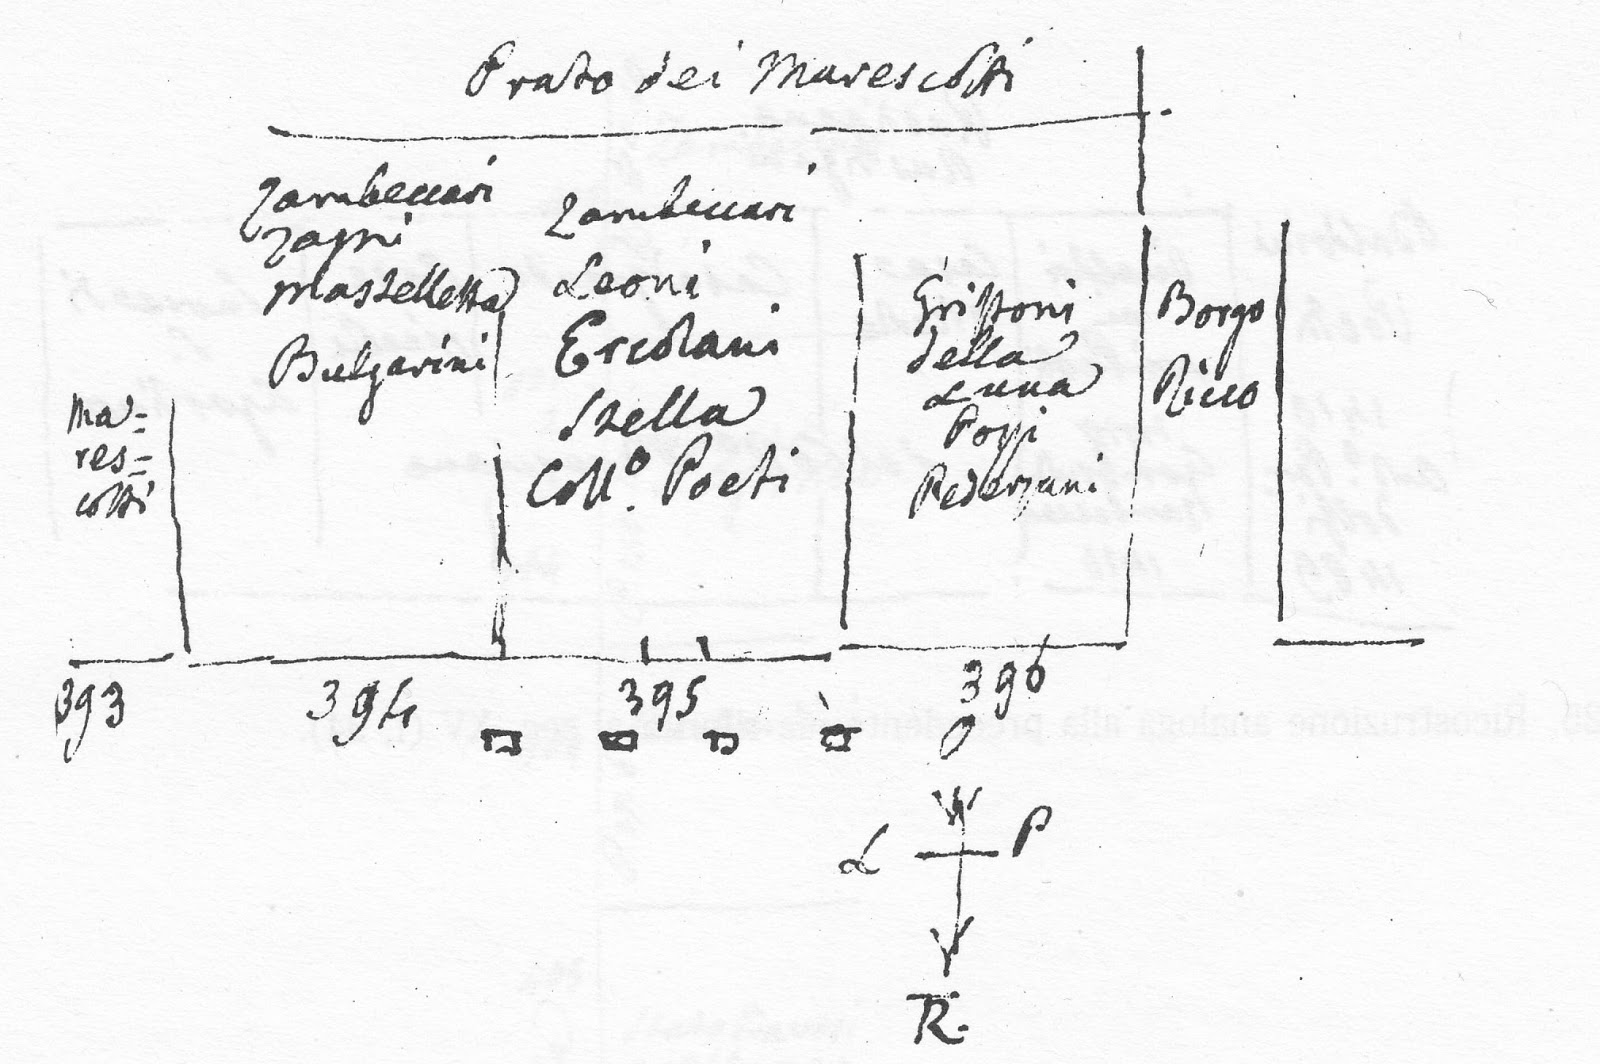 Prato dei Marescotti
Zambeccari
Zagni
Mastelletta
Bulgarini
Zambeccari
Leoni
Ercolani
Stella
Coll.º Poeti
Griffoni
della
Luna
Poggi
Pederzani
Borgo
Ricco
Ma-
res-
cotti
393
394
395
396
L
P
R.